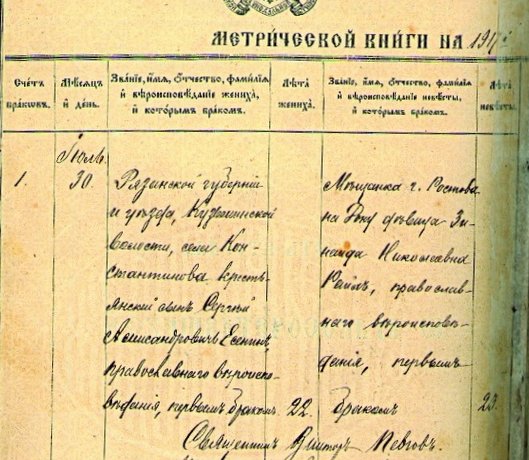 МЕТРИЧЕСКОЙ КНИГИ НА 1917
Счетъ браковъ.
Мѣсяцъ и день.
Званіе, имя, отчество, фамилія
и вѣроисповѣданіе жениха,
и которымъ бракомъ.
Лѣта
жениха.
Званіе, имя, отчество, фамилія
и вѣроисповѣданіе невѣсты,
и которымъ бракомъ.
Лѣта
невѣсты.
Іюль
1.
30.
Рязанской губерніи
и уѣзда, Кузьминской
волости, села Кон-
стантинова кресть-
янскій сынъ Сергѣй
Александровичъ Есенинъ,
православнаго вѣроиспо-
вѣданія, первымъ бракомъ
22.
Мѣщанка г. Ростова
на Дону дѣвица Зи-
наида Николаевна
Райхъ, православ-
наго вѣроисповѣ-
данія, первымъ
бракомъ
23.
Священникъ Викторъ Пѣвговъ.